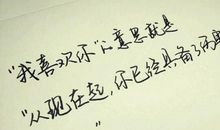 "我喜欢你"的意思就是
"从现在起，你已经具备了伤害